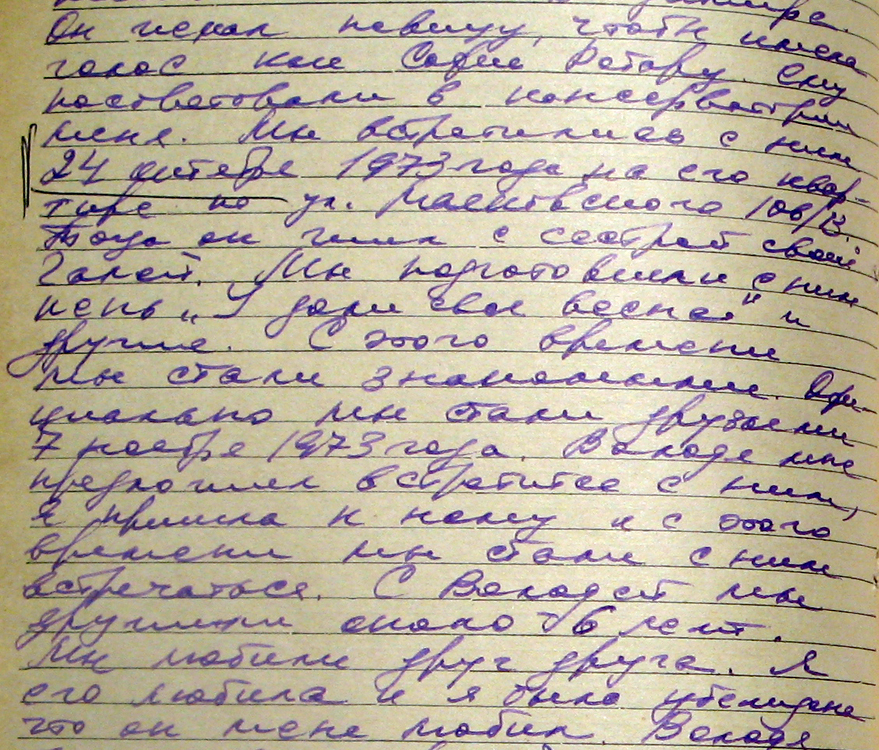 Он искал певицу, чтобы имела
голос как София Ротару. Ему
посоветовали в консерватории
меня. Мы встретились с ним
24 октября 1973 года на его квар-
тире по ул. Маяковского 106/13.
Тогда он жил с сестрой своей
Галей. Мы подготовили с ним
песнь „Я дали свои весной" и
другие. С этого времени
мы стали знакомыми. Офи-
циально мы стали друзьями
7 ноября 1973 года. Володя мне
предложил встретится с ним,
я пришла к нему и с этого
времени мы стали с ним
встречаться. С Володей мы
дружили около 6 лет.
Мы любили друг друга. Я
его любила и я была убеждена
что он меня любил. Володя